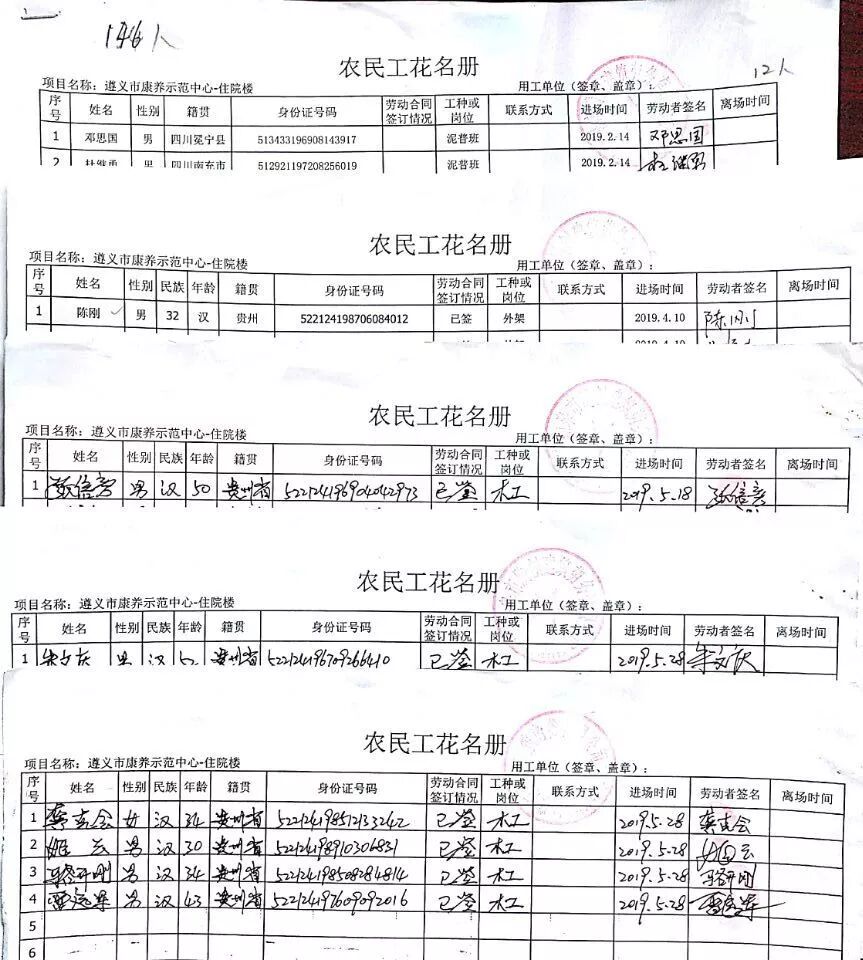 146人
农民工花名册
12人
项目名称：遵义市康养示范中心-住院楼 用工单位（签章、盖章）：
序号 姓名 性别 籍贯 身份证号码 劳动合同签订情况 工种或岗位 联系方式 进场时间 劳动者签名 离场时间
1 邓思国 男 四川冕宁县 513433196908143917 泥普班 2019.2.14 邓思国
2 杜继勇 男 四川南充市 512921197208256019 泥普班 2019.2.14 杜继勇
农民工花名册
项目名称：遵义市康养示范中心-住院楼 用工单位（签章、盖章）：
序号 姓名 性别 民族 年龄 籍贯 身份证号码 劳动合同签订情况 工种或岗位 联系方式 进场时间 劳动者签名 离场时间
1 陈刚 男 32 汉 贵州 522124198706084012 已签 外架 2019.4.10 陈刚
农民工花名册
项目名称：遵义市康养示范中心-住院楼 用工单位（签章、盖章）：
序号 姓名 性别 民族 年龄 籍贯 身份证号码 劳动合同签订情况 工种或岗位 联系方式 进场时间 劳动者签名 离场时间
1 男 汉 50 贵州省 522124196904042973 已签 木工 2019.5.18
农民工花名册
项目名称：遵义市康养示范中心-住院楼 用工单位（签章、盖章）：
序号 姓名 性别 民族 年龄 籍贯 身份证号码 劳动合同签订情况 工种或岗位 联系方式 进场时间 劳动者签名 离场时间
1 朱文庆 男 汉 52 贵州省 522124196709266410 已签 木工 2019.5.28 朱文庆
农民工花名册
项目名称：遵义市康养示范中心-住院楼 用工单位（签章、盖章）：
序号 姓名 性别 民族 年龄 籍贯 身份证号码 劳动合同签订情况 工种或岗位 联系方式 进场时间 劳动者签名 离场时间
1 龚克会 女 汉 34 贵州省 522124198512133242 已签 木工 2019.5.28 龚克会
2 姬云 男 汉 30 贵州省 522124198910306831 已签 木工 2019.5.28 姬云
3 男 汉 34 贵州省 522124198508284814 已签 木工 2019.5.28
4 男 汉 43 贵州省 522124197609092016 已签 木工 2019.5.28
5
6